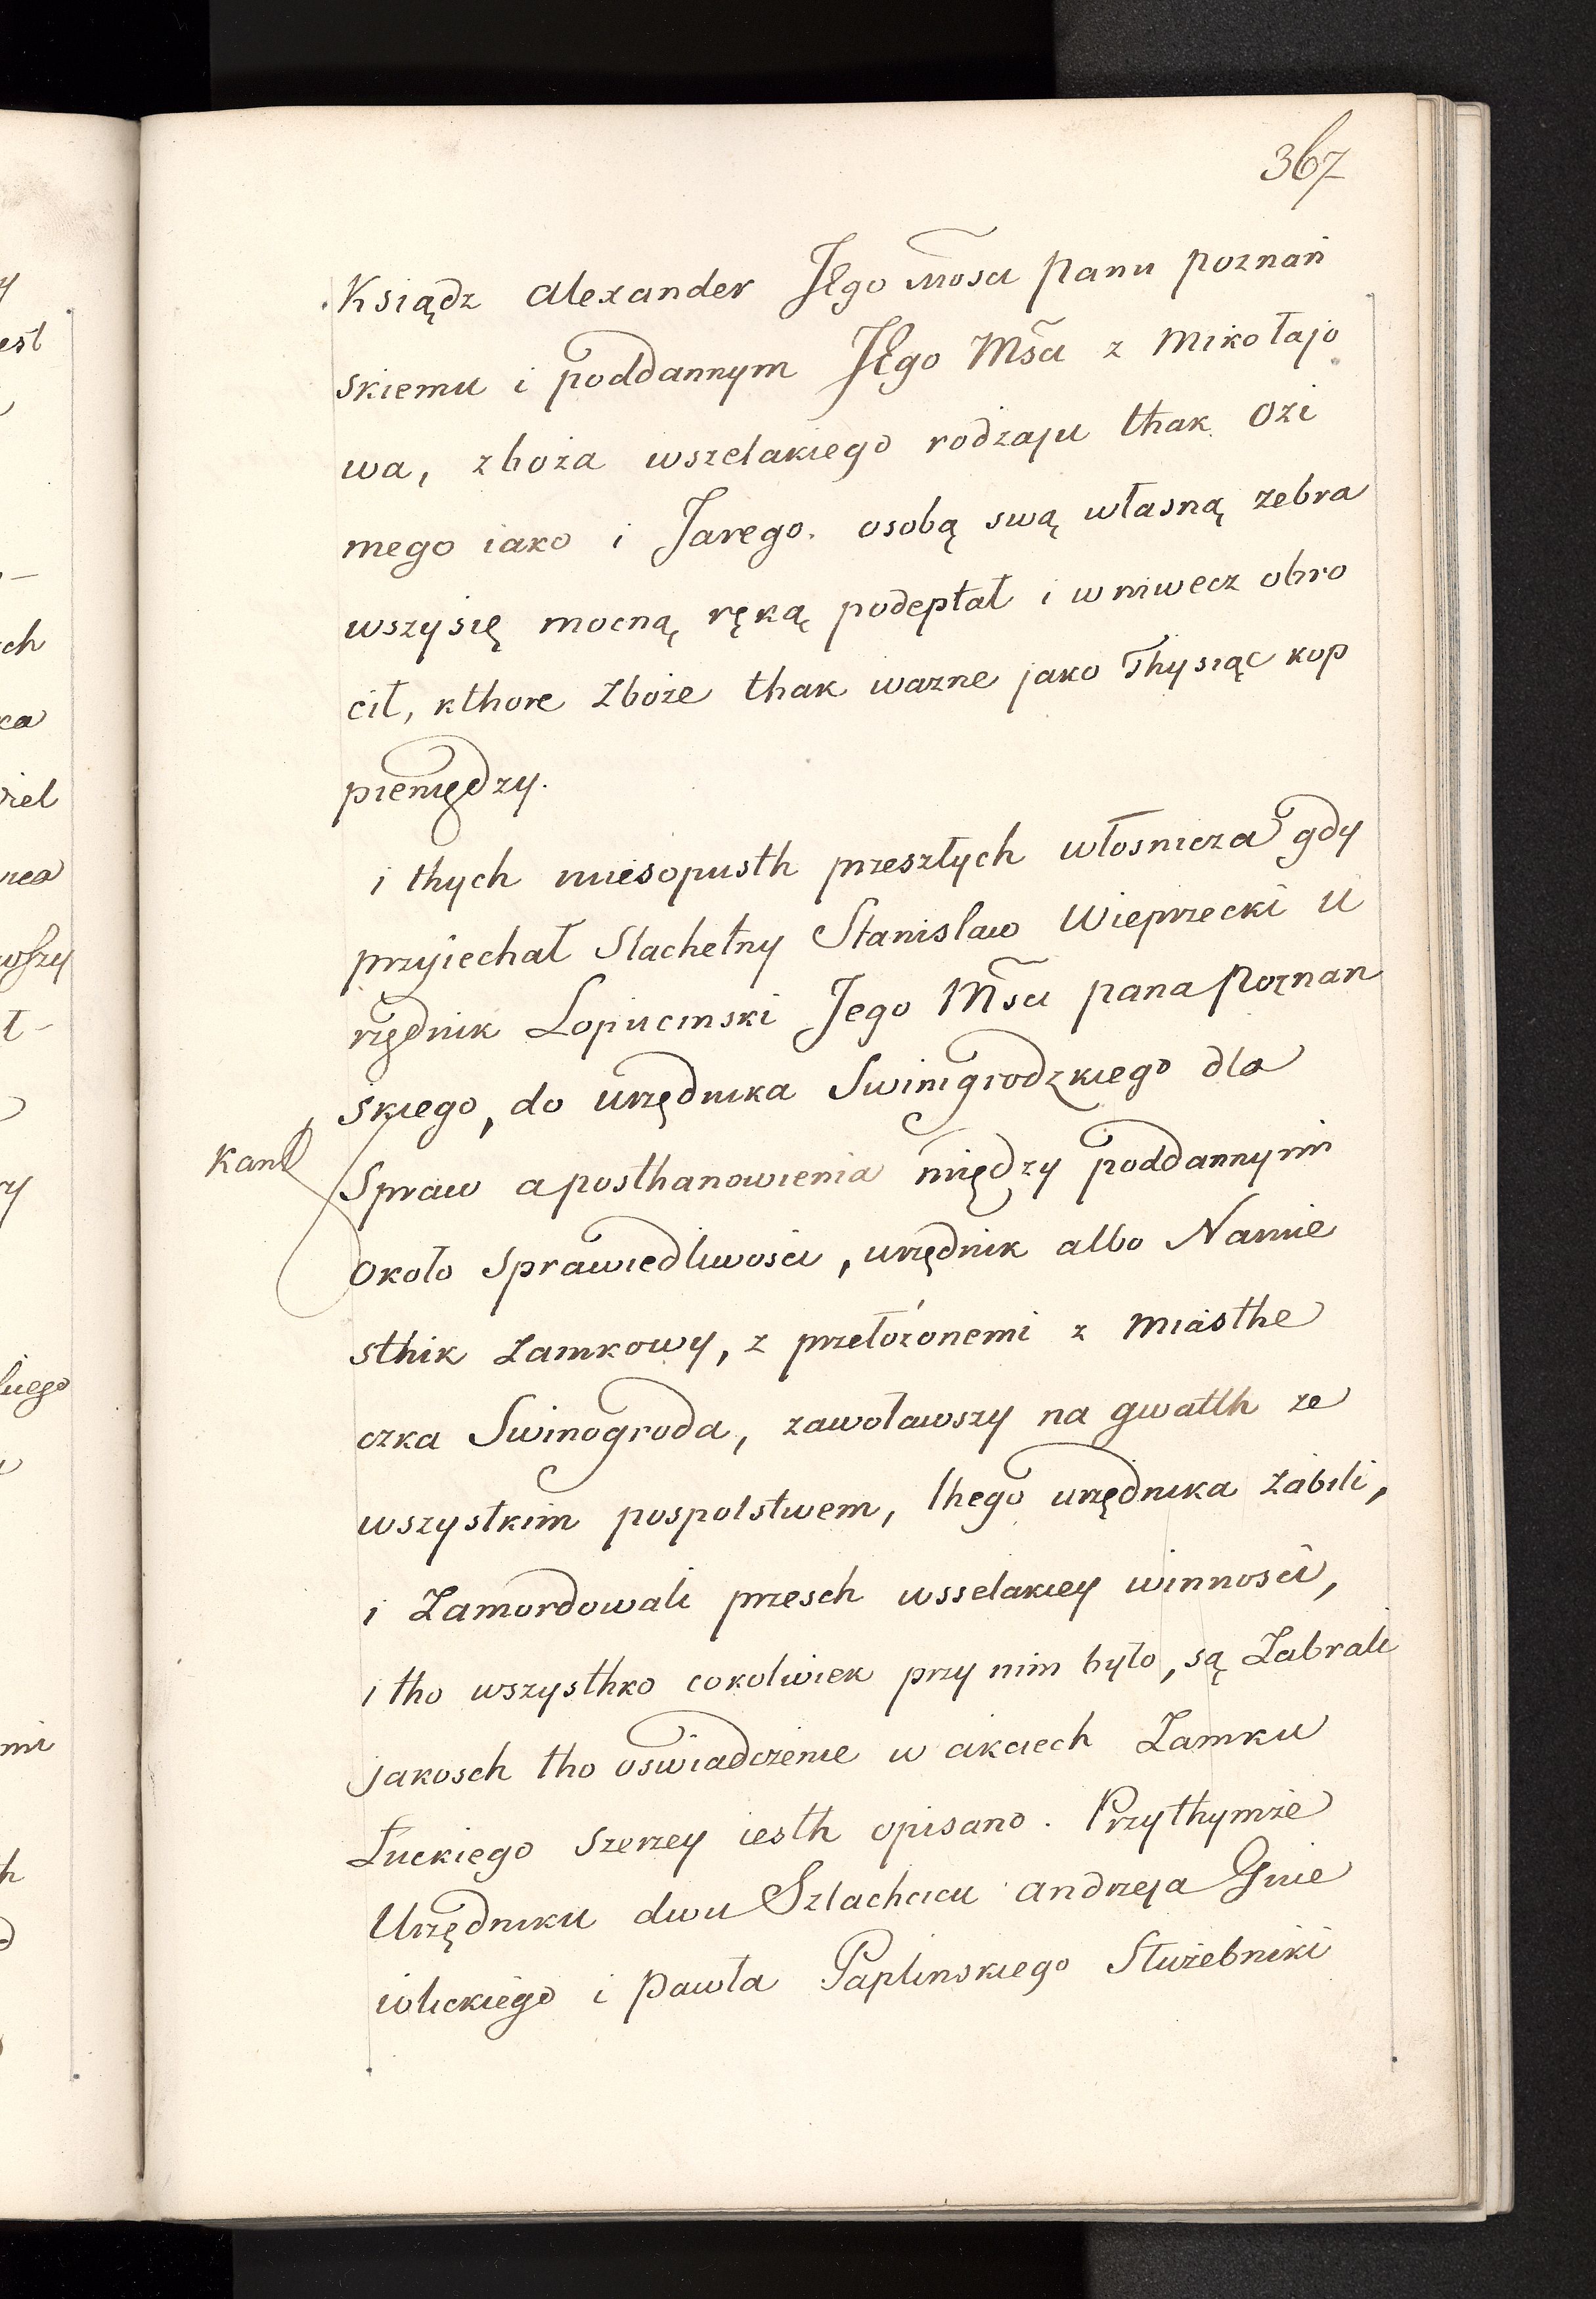 367
Ksiądz Alexander Jego Mosci panu poznań
skiemu i poddannym Jego Msci z Mikołajo
wa, zboża wszelakiego rodzaju thak ozi
mego iako i Jarego. osobą swą własną zebra
wszysię mocną ręką podeptał i wniwecz obro
cił, kthore Zboże thak wazne jako Thysiąc kop
pieniędzy.
i thych miesopusth przeszłych włosnicza gdy
przyiechał Slachetny Stanislaw Wieprzecki u
rzędnik Lopucinski Jego Msci pana Poznan
skiego, do urzędnika Swinigrodzkiego dla
Spraw a posthanowienia między poddannymi
około sprawiedliwosci, urzędnik albo Namie
sthik Zamkowy, z przełożonemi z miasthe
czka Swinogroda, zawoławszy na gwałth ze
wszystkim pospolstwem, thego urzędnika zabili,
i Zamordowali przesch wsselakiey winnosci,
i tho wszysthko cokolwiek przy nim było, są Zabrali
jakosch tho oswiadczenie w akciech Zamku
Łuckiego szerzey iesth opisano. Przythymże
Urzędniku dwu Szlachcicu Andrzeja Gnie
wlickiego i Pawła Paplinskiego Służebniki